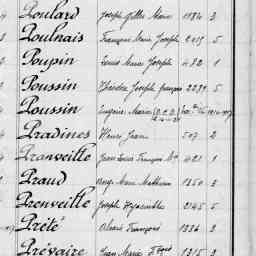 Poulard Joseph Gilles Marie 1184 3
Poulnais François Marie Joseph 2419 5
Poupin Louis Marie Joseph 472 1
Poussin Théodore Joseph françois 2239 5
Poussin Eugène Marie
Pradines Henri Jean 507 2
Pranveille Jean Louis François Mie 421 1
Praud Ange Marie Mathurin 1250 3
Prenveille Joseph Hyacinthe 2145 5
Prêté Alexis François 1336 3
Prévaire Jean Marie 1315 3